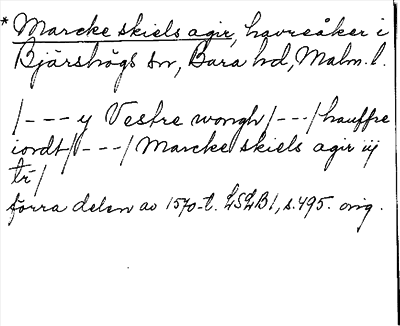 * Marcke skiels agir, havreåker i
Bjärshögs sn, Bara hd, Malm. l.
/--- y Vestre wongh/---/hauffre
iordt/---/Marcke skiels agir iij
tr/
förra delen av 1570-t. LSLB1, s. 495. orig.